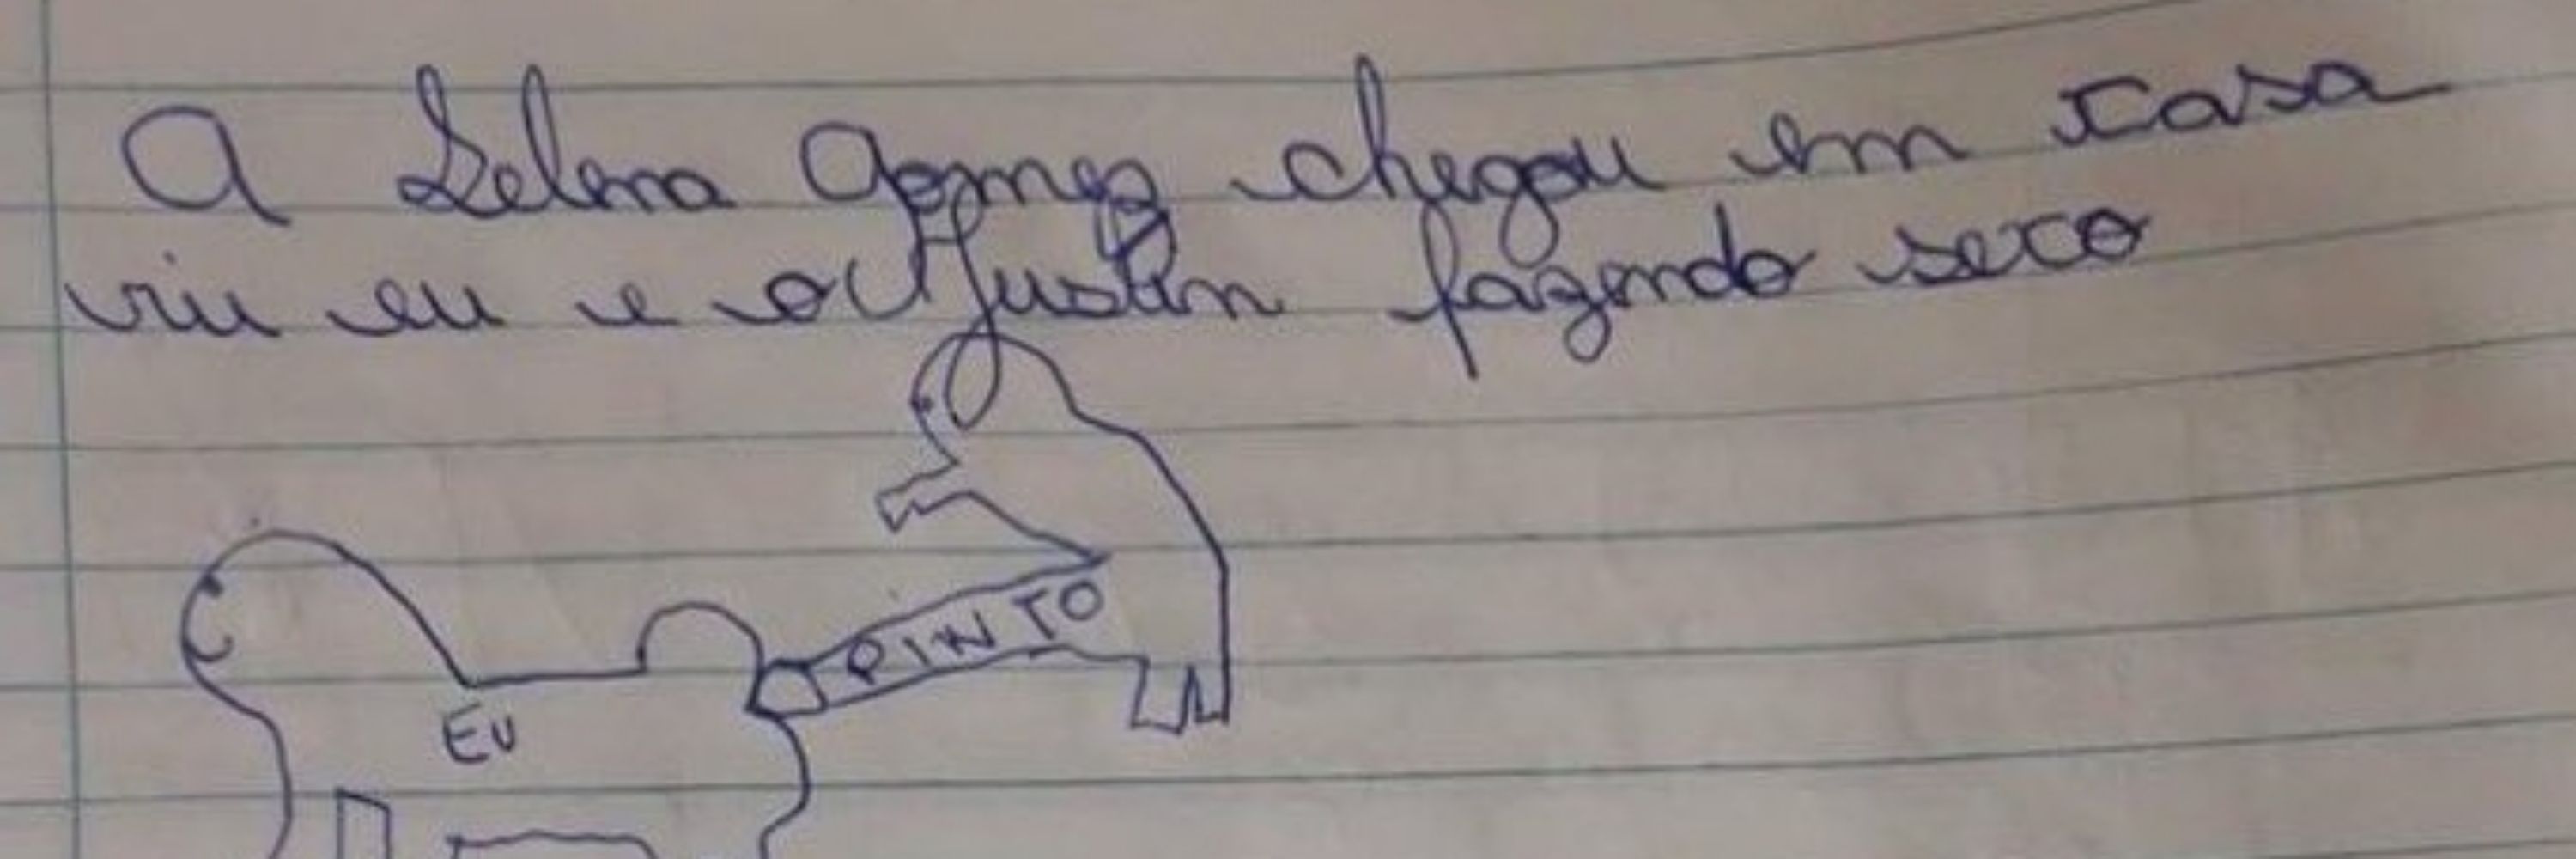 A Selena Gomez chegou em casa
viu eu e o Justin fazendo sexo
PINTO
EU